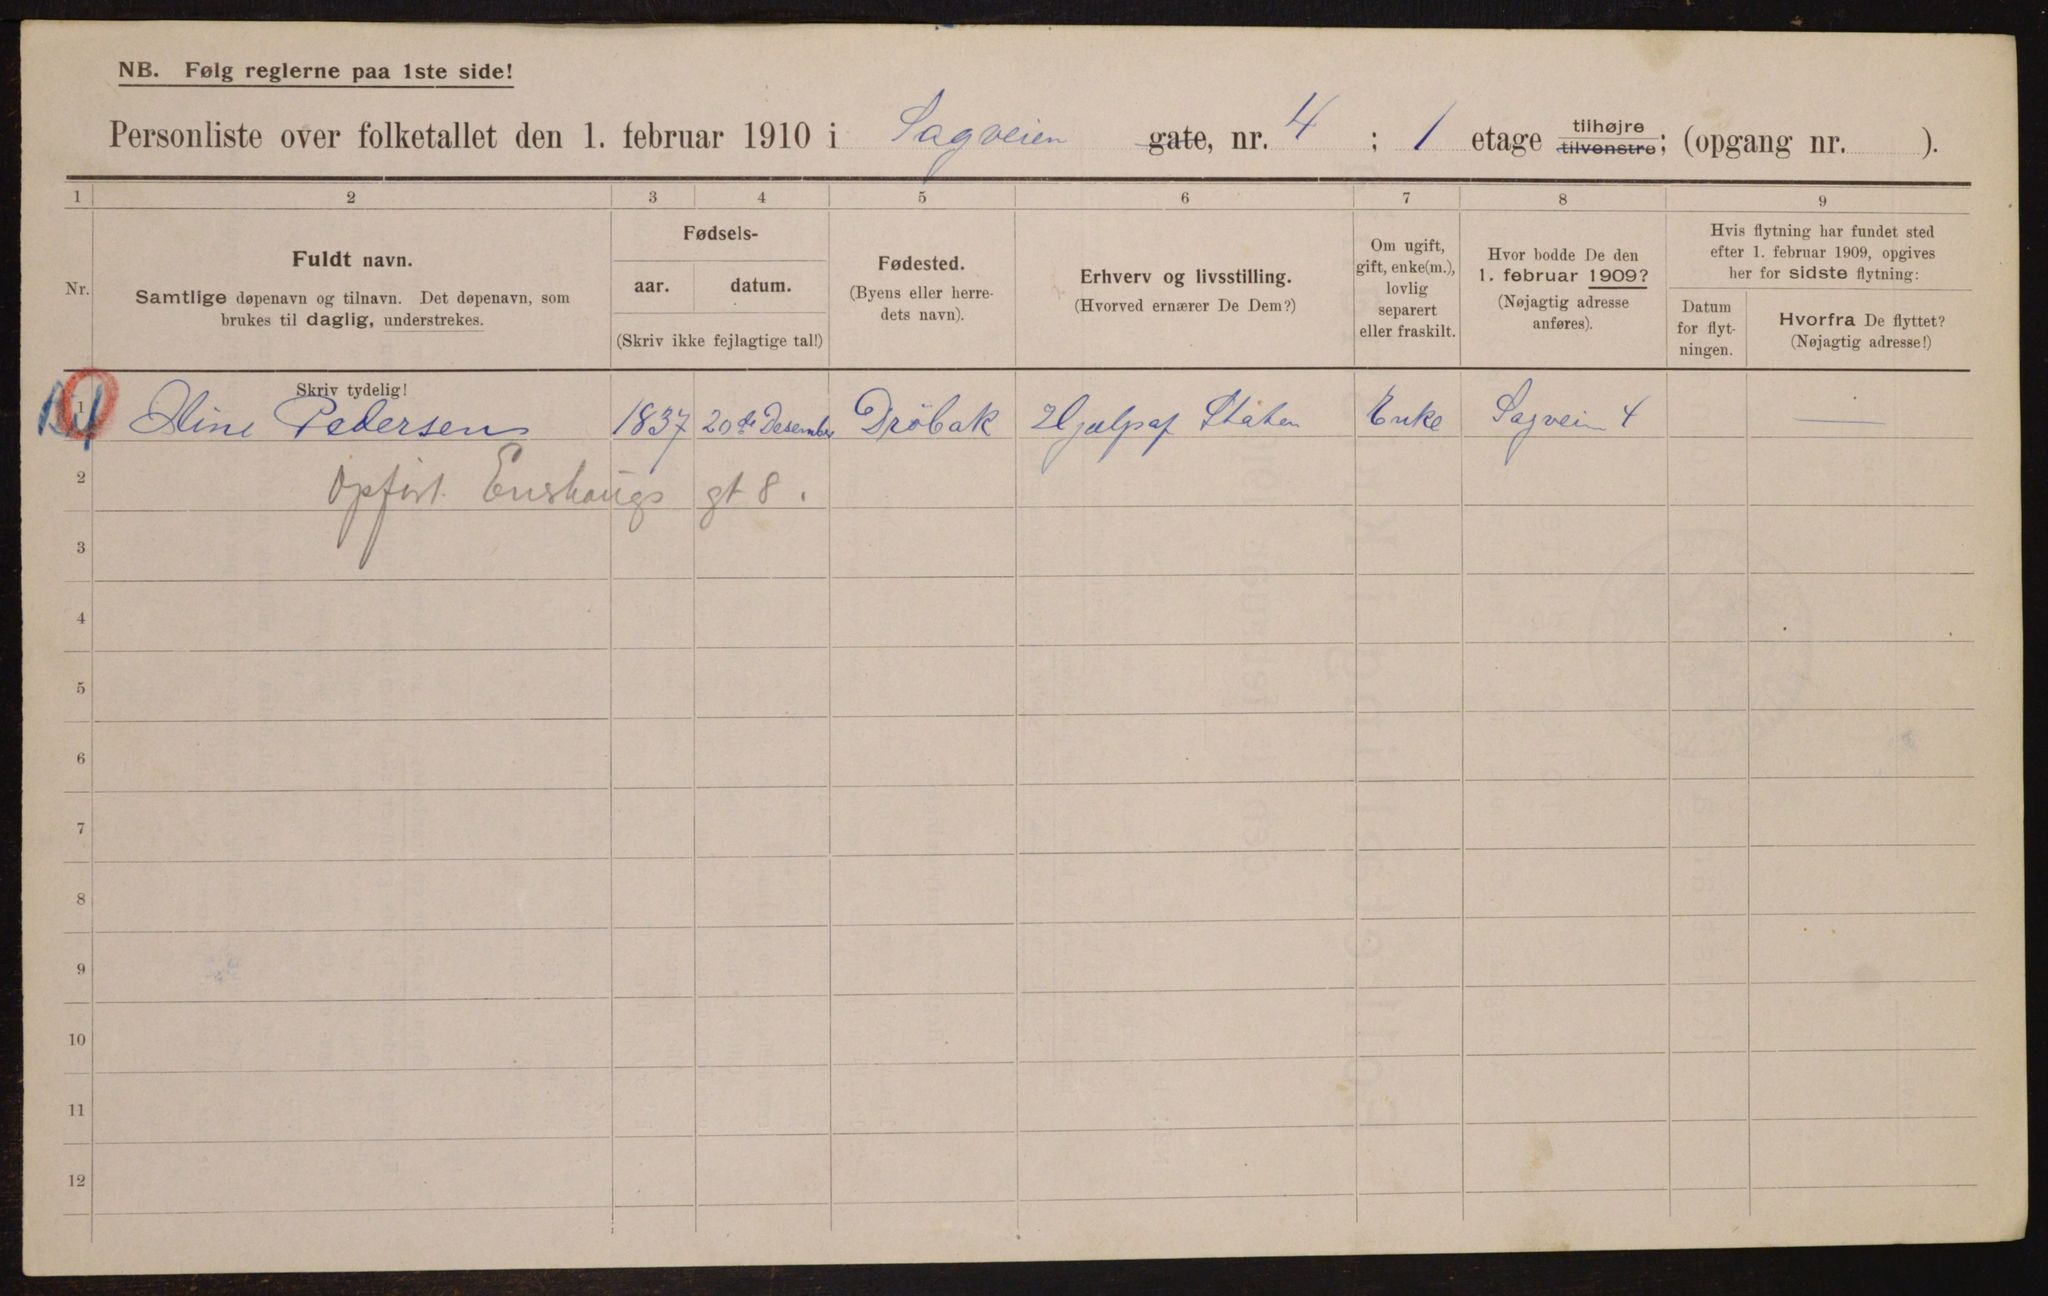 NB. Følg reglerne paa 1ste side!
Personliste over folketallet den 1. februar 1910 i Sagveien gate, nr. 4 ; 1 etage tilhøjre tilvenstre; (opgang nr. ).
1 2 3 4 5 6 7 8 9
Nr.
Fuldt navn.
Samtlige døpenavn og tilnavn. Det døpenavn, som
brukes til daglig, understrekes.
Fødsels-
aar. datum.
(Skriv ikke fejlagtige tal!)
Fødested.
(Byens eller herre-
dets navn).
Erhverv og livsstilling.
(Hvorved ernærer De Dem?)
Om ugift,
gift, enke(m.),
lovlig
separert
eller fraskilt.
Hvor bodde De den
1. februar 1909?
(Nøjagtig adresse
anføres).
Hvis flytning har fundet sted
efter 1. februar 1909, opgives
her for sidste flytning:
Datum
for flyt-
ningen.
Hvorfra De flyttet?
(Nøjagtig adresse!)
Skriv tydelig!
1 Pedersen 1837 20de Desember Drøbak Hjælp af Staten Enke Sagvein 4 —
2 Opført gt 8.
3
4
5
6
7
8
9
10
11
12